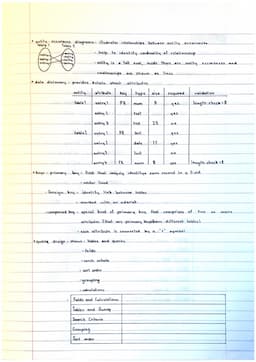 • entity-occurrence diagrams - illustrate relationships between entity occurrences
- help to identify cardinality of relationship
- entity is a tall oval, inside there are entity occurrences and
relationships are shown as lines
• data dictionary - provides details about attributes
entity attribute key type size required validation
table1 entry1 PK num 8 yes length check = 8
entry2 text yes
entry3 text 25 no
table2 entry1 PK text yes
entry2 date 15 yes
entry3 text no
entry4 FK num 8 no length check = 8
• keys - primary key - field that uniquely identifies each record in a field
- underlined
- foreign key - identify link between tables
- marked with an asterisk
- compound key - special kind of primary key that comprises of two or more
attributes
- each attribute is connected by a '+' symbol
• query design - shows: tables and queries
- fields
- search criteria
- sort order
- grouping
- calculations
Fields and Calculations
Tables and Query
Search Criteria
Grouping
Sort order